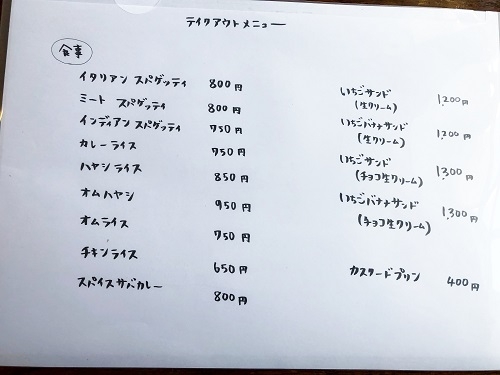 テイクアウトメニュー
食事
イタリアン スパゲッティ 800円
ミート スパゲッティ 800円
インディアン スパゲッティ 750円
カレーライス 750円
ハヤシライス 850円
オムハヤシ 950円
オムライス 750円
チキンライス 650円
スパイスサバカレー 800円
いちごサンド 1,200円
(生クリーム)
いちごバナナサンド 1,200円
(生クリーム)
いちごサンド 1,300円
(チョコ生クリーム)
いちごバナナサンド 1,300円
(チョコ生クリーム)
カスタードプリン 400円